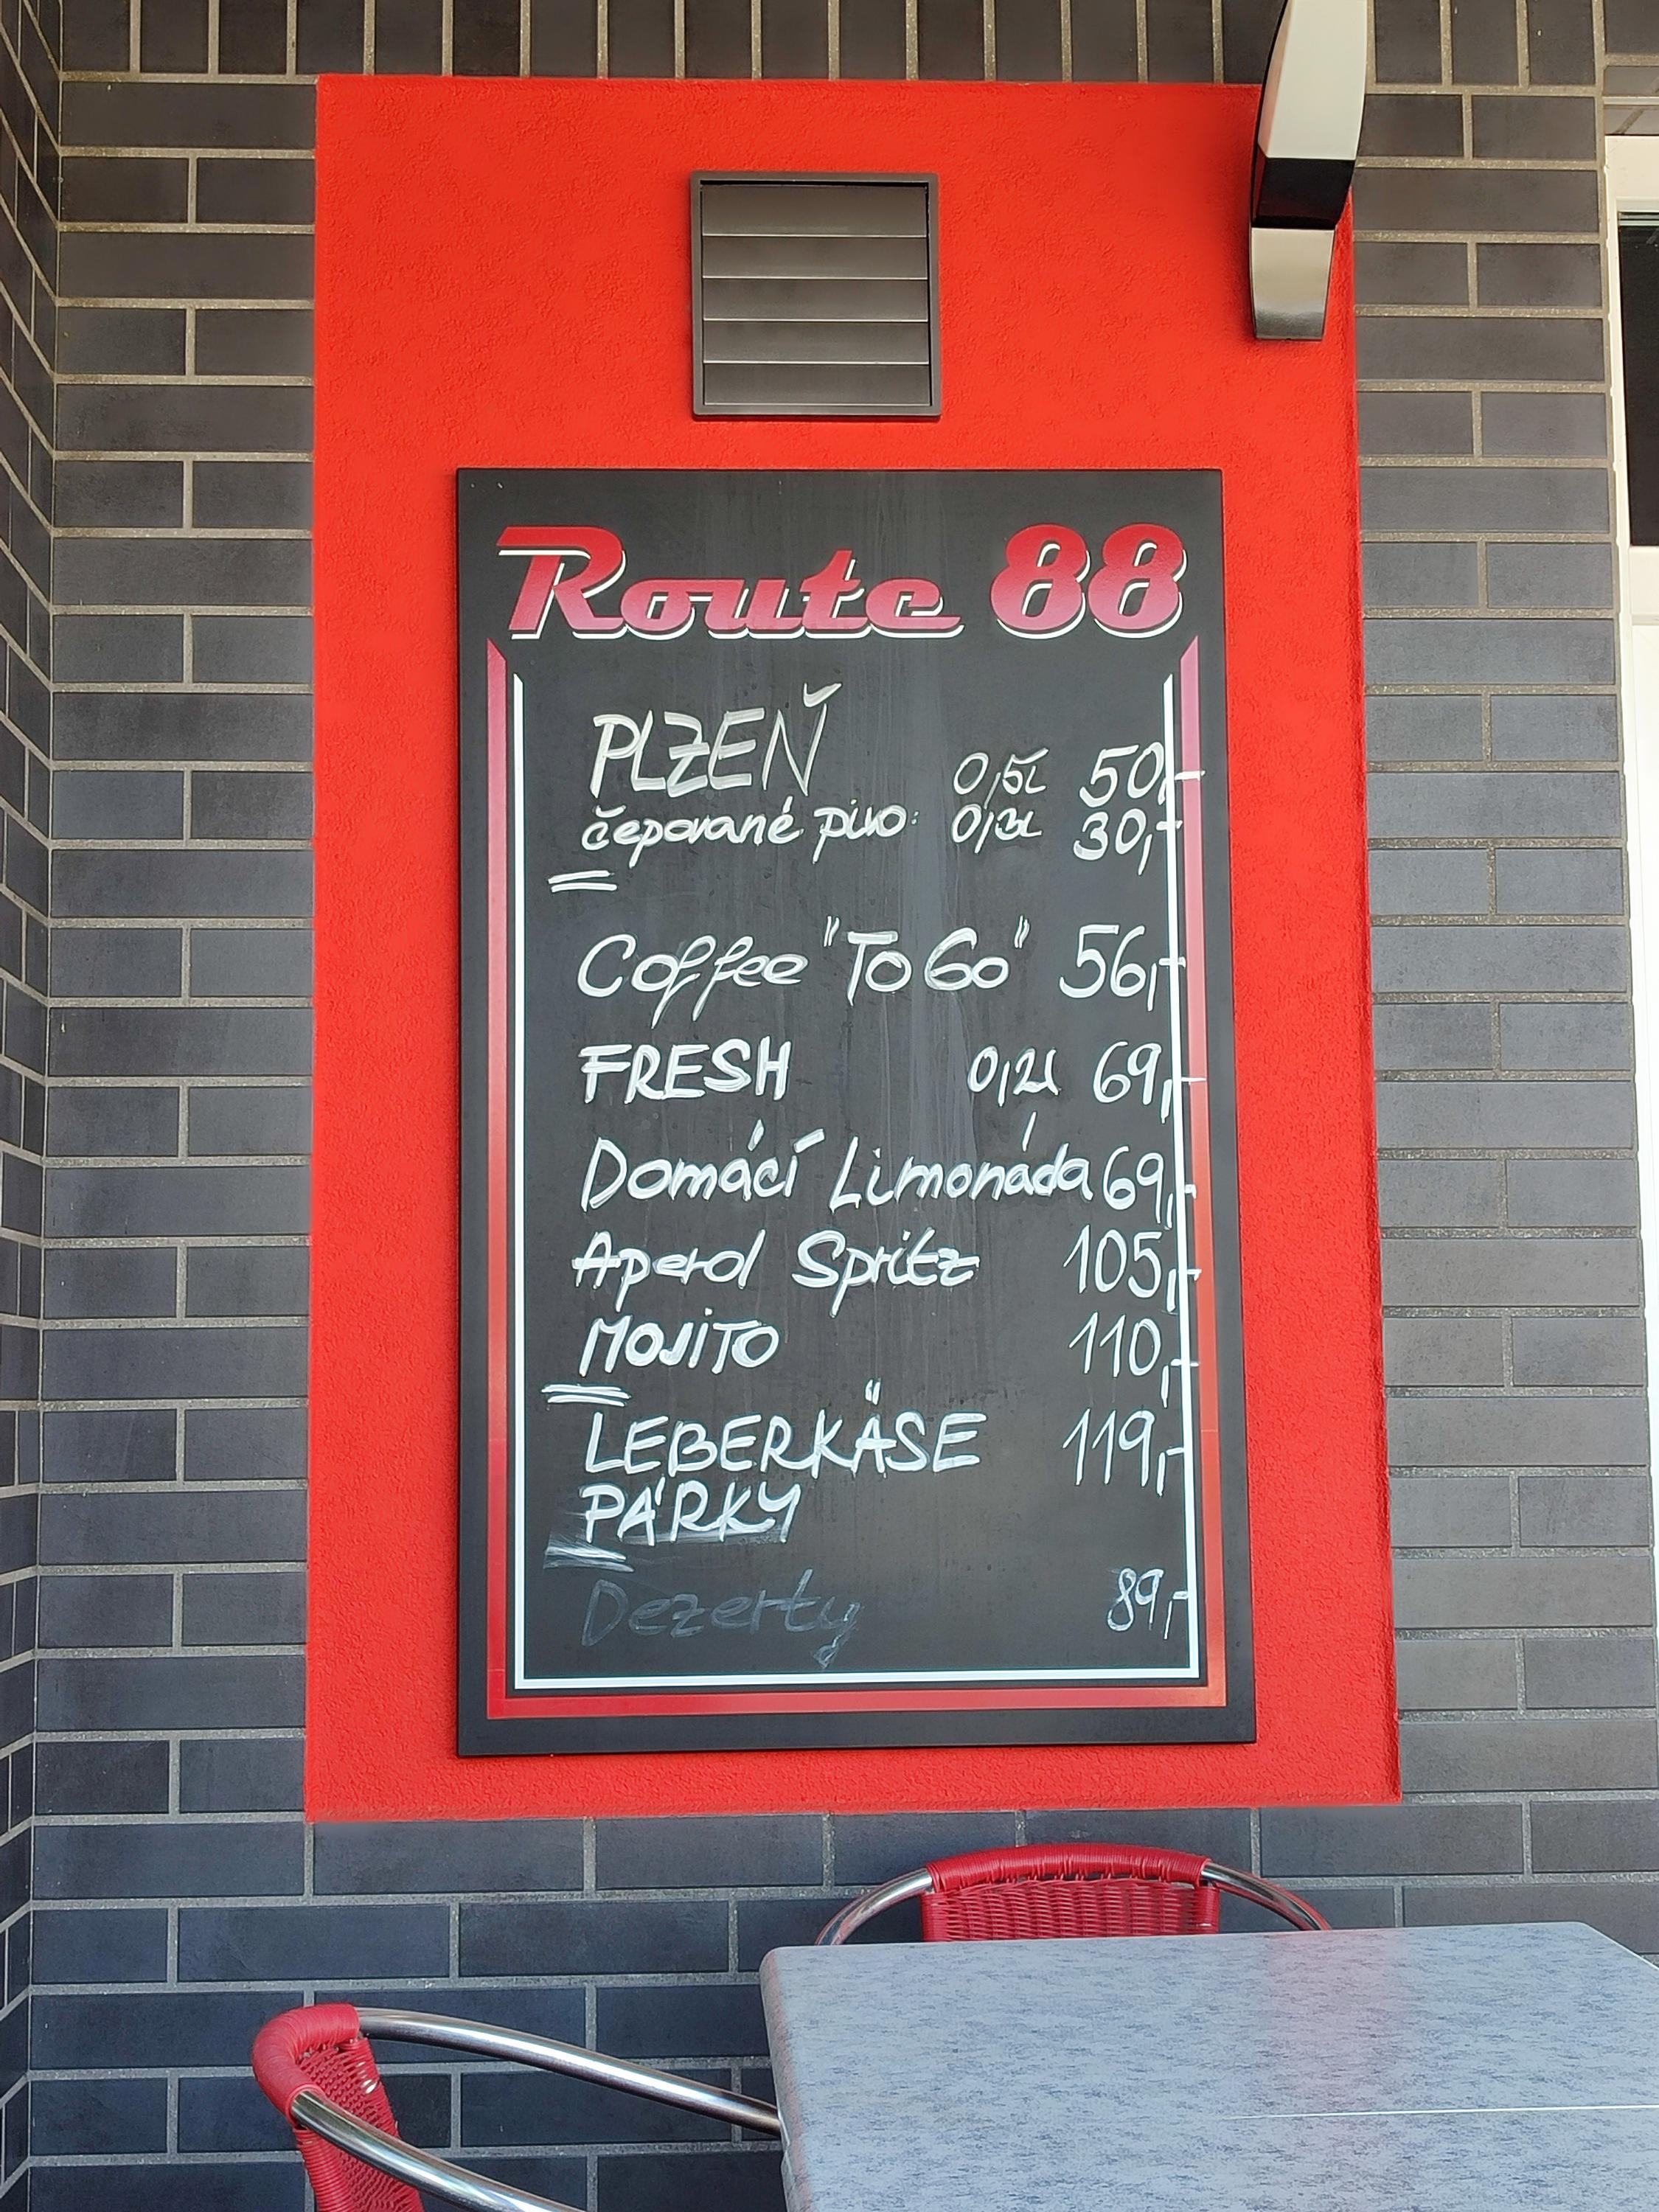 Route 88
PLZEŇ 0,5l 50,-
čepované pivo: 0,3l 30,-
Coffee "TO GO" 56,-
FRESH 0,2l 69,-
Domácí Limonáda 69,-
Aperol Spritz 105,-
MOJITO 110,-
LEBERKÄSE 119,-
PÁRKY
Dezerty 89,-